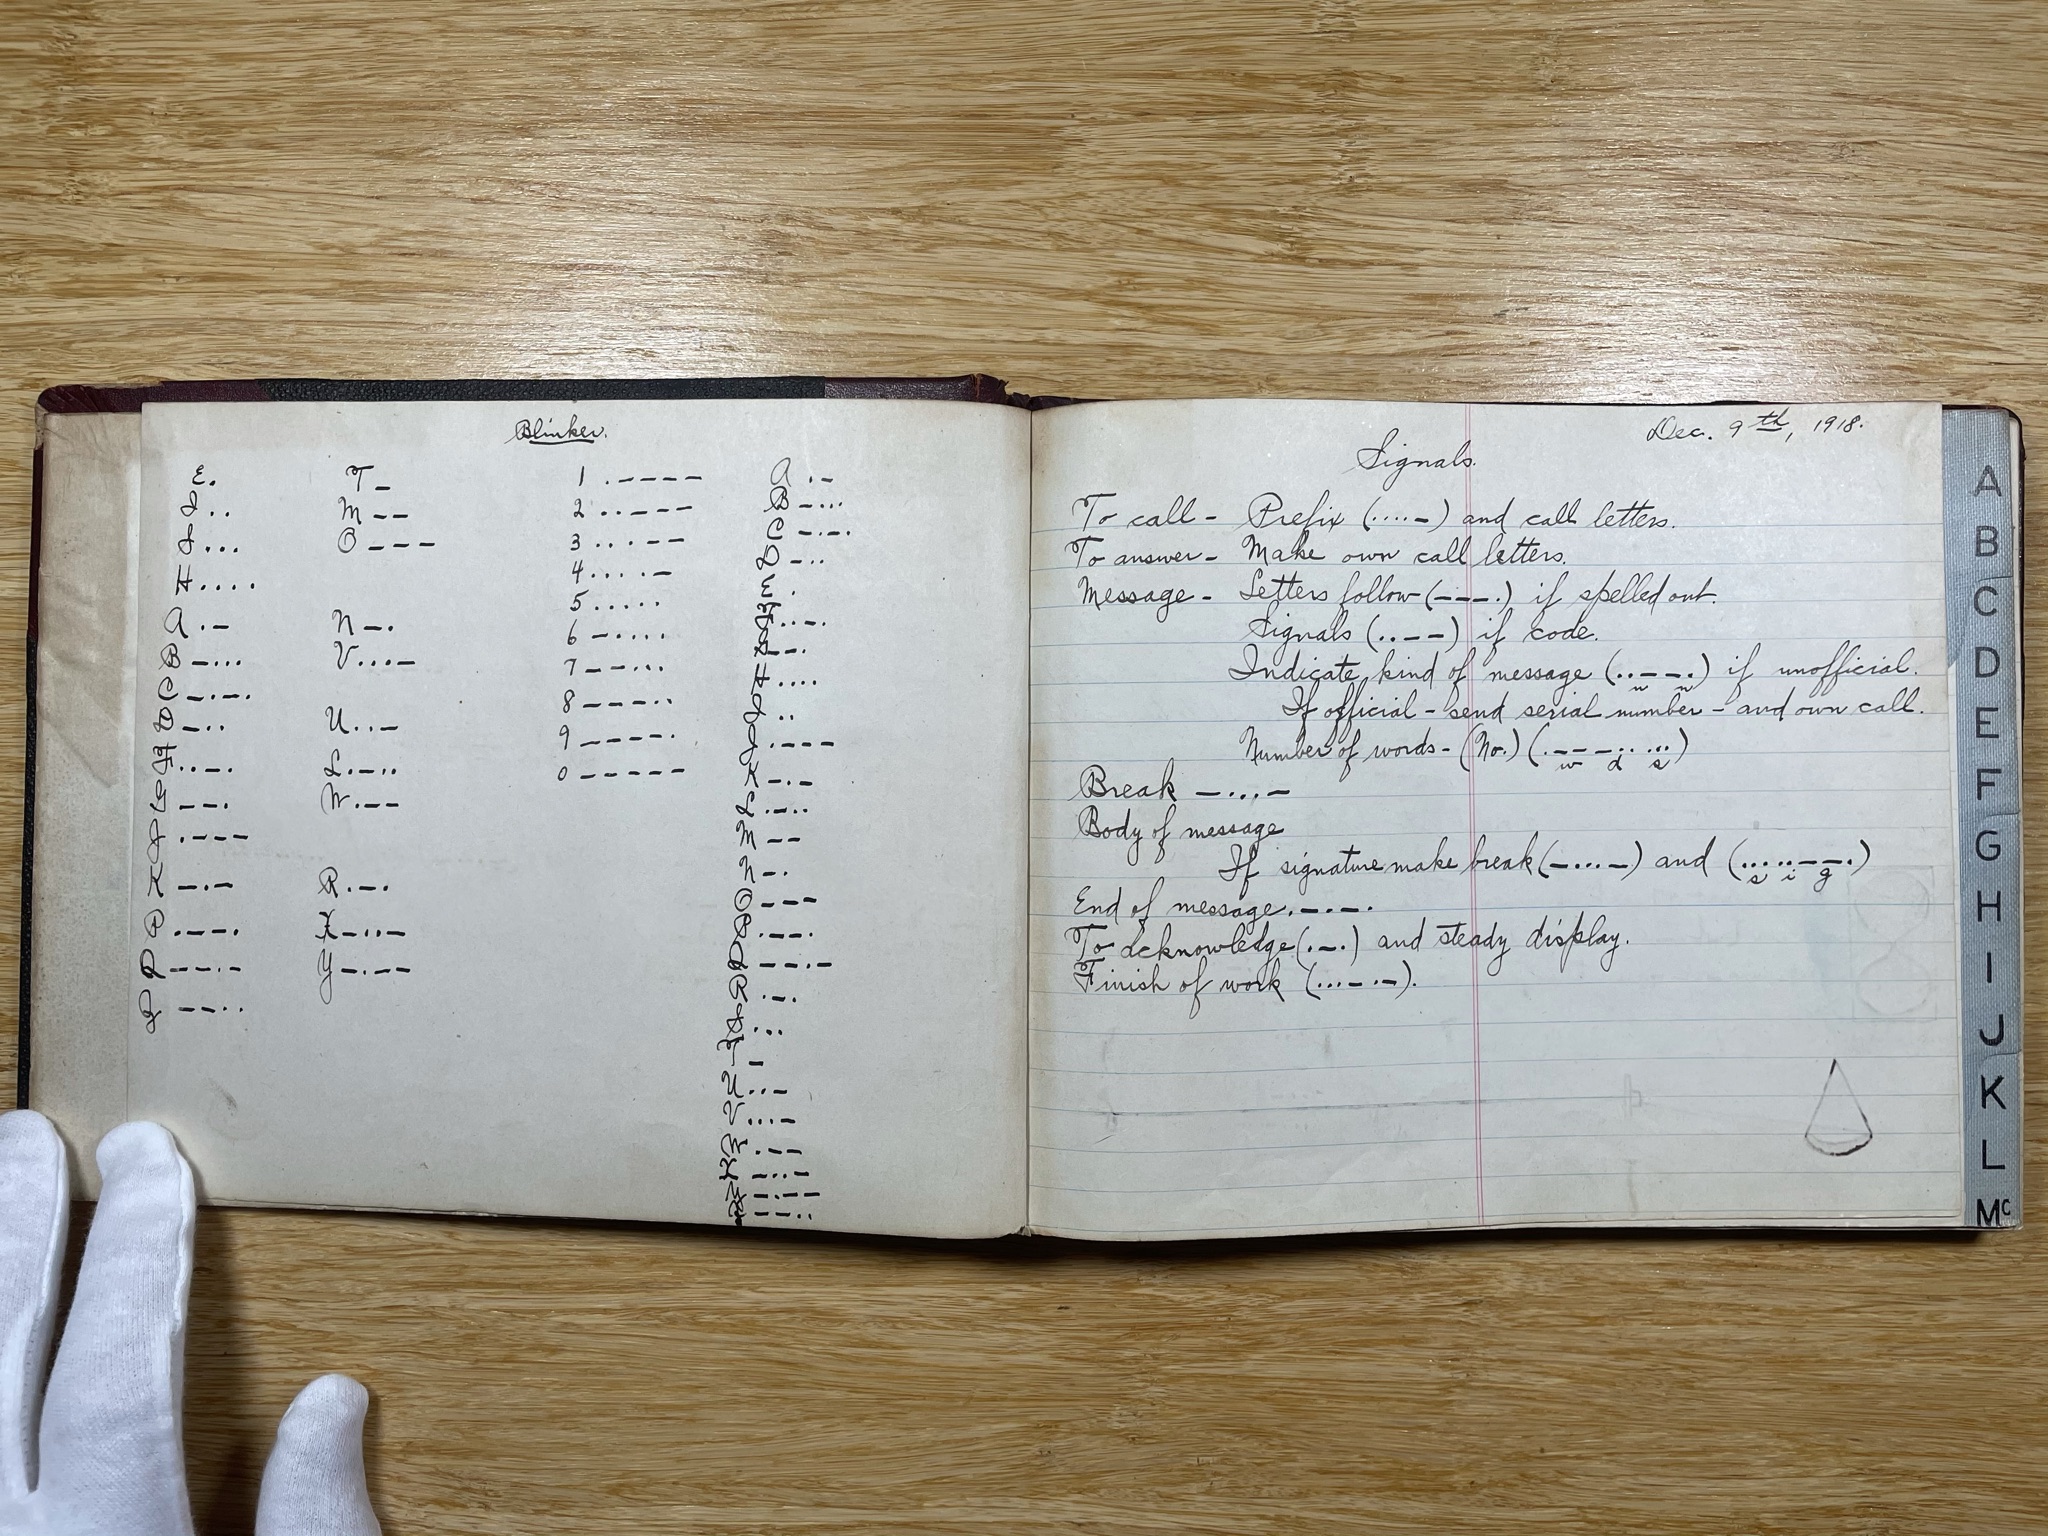 Blinker.
E .
I . .
S . . .
H . . . .
A . –
B – . . .
C – . – .
D – . .
F . . – .
G – – .
J . – – –
K – . –
P . – – .
Q – – . –
Z – – . .
T –
M – –
O – – –
N – .
V . . . –
U . . –
L . – . .
W . – –
R . – .
X – . . –
Y – . – –
1 . – – – –
2 . . – – –
3 . . . – –
4 . . . . –
5 . . . . .
6 – . . . .
7 – – . . .
8 – – – . .
9 – – – – .
0 – – – – –
A . –
B – . . .
C – . – .
D – . .
E .
F . . – .
G – – .
H . . . .
I . .
J . – – –
K – . –
L . – . .
M – –
N – .
O – – –
P . – – .
Q – – . –
R . – .
S . . .
T –
U . . –
V . . . –
W . – –
X – . . –
Y – . – –
Z – – . .
Dec. 9th, 1918.
Signals.
To call – Prefix (. . . . –) and call letters.
To answer – Make own call letters.
Message – Letters follow (– – – .) if spelled out.
Signals (. . – –) if code.
Indicate kind of message (. . – – .) if unofficial.
u n
If official – send serial number – and own call.
Number of words – (No.) (. – – – . . . . .)
w d s
Break – . . . –
Body of message
If signature make break (– . . . –) and (. . . . . – – .)
s i g
End of message . – . – .
To acknowledge (. – .) and steady display.
Finish of work (. . . – . –).
A
B
C
D
E
F
G
H
I
J
K
L
Mc